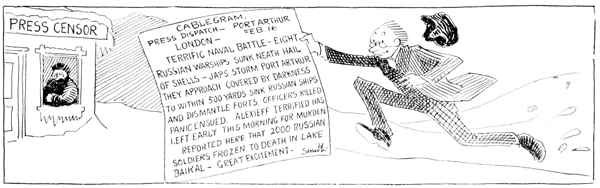 PRESS CENSOR
CABLEGRAM.
PRESS DISPATCH - PORT ARTHUR
FEB. 16
LONDON-
TERRIFIC NAVAL BATTLE - EIGHT
RUSSIAN WARSHIPS SUNK NEATH HAIL
OF SHELLS - JAPS STORM PORT ARTHUR
THEY APPROACH COVERED BY DARKNESS
TO WITHIN 500 YARDS SINK RUSSIAN SHIPS
AND DISMANTLE FORTS OFFICERS KILLED
PANIC ENSUED. ALEXIEFF TERRIFIED HAS
LEFT EARLY THIS MORNING FOR MUKDEN
REPORTED HERE THAT 2000 RUSSIAN
SOLDIERS FROZEN TO DEATH IN LAKE
BAIKAL - GREAT EXCITEMENT - Smith